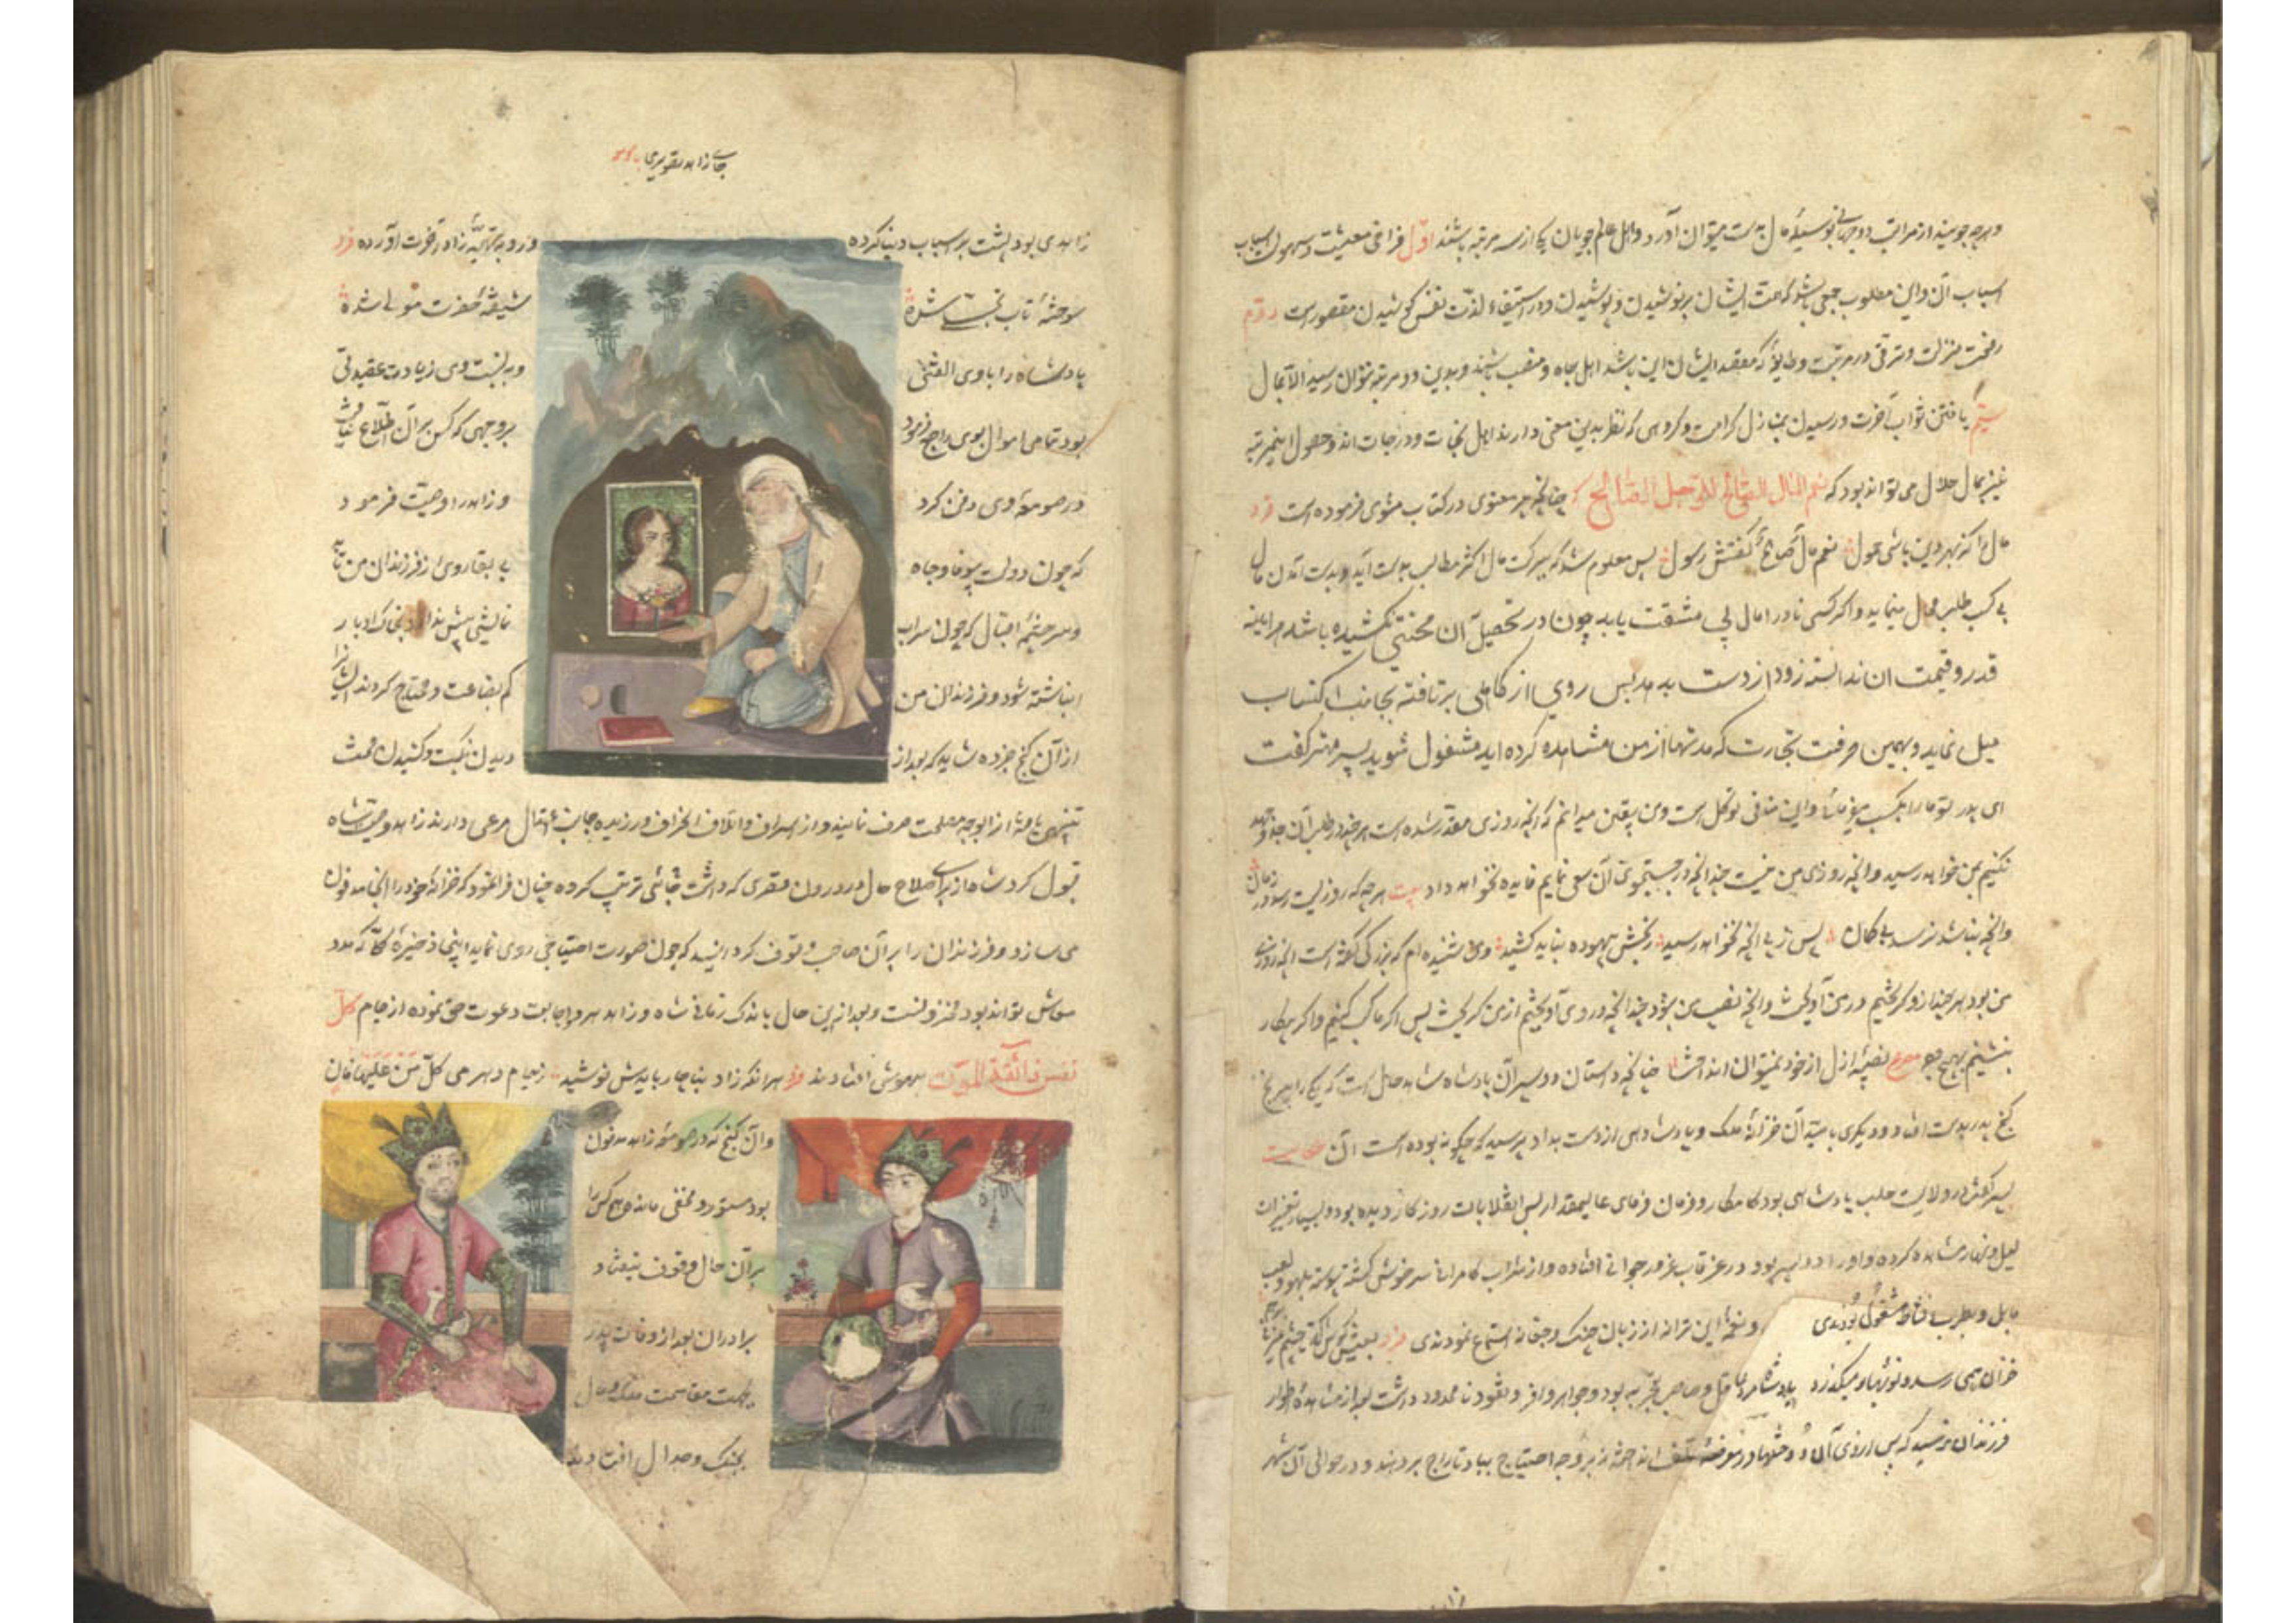 و هرچه جویند از مراتب دوجهانی بوسیلهٔ مال بدست میتوان آورد و اهل عالم جویان یکی از سه مرتبه باشند اوّل فراخی معیشت و سهولت اسباب
اسباب آن و این مطلوب جمعی باشد که همت ایشان بر نوشیدن و پوشیدن و در استیفاء لذّت نفس کوشیدن مقصور است دوّم
رفعت منزلت و ترقی در مرتبت و طایفهٔ که مقصد ایشان این باشد اهل جاه و منصب باشند و بدین دو مرتبه نتوان رسید الا بمال
سیّم یافتن ثواب آخرت و رسیدن بمنازل کرامت و گروهی که نظر بدین معنی دارند اهل نجات و درجات اند و حصول این مرتبه
نیز بمال حلال می تواند بود که نعم المال الصالح للرجل الصالح چنانچه پیر معنوی در کتاب مثنوی فرموده است فرد
مال را کز بهر دین باشی حمول نعم مال صالح گفتش رسول پس معلوم شد که ببرکت مال اکثر مطالب بدست آید و بدست آمدن مال
بی کسب و طلب محال مینماید و اگر کسی نادرا مال بی مشقت یابد چون در تحصیل آن محنتی نکشیده باشد هرآینه
قدر و قیمت ان ندانسته زود از دست بدهد پس روی از کاهلی برتافته بجانب اکتساب
میل نماید و بهمین حرفت تجارت که مدتها از من مشاهده کرده اید مشغول شوید پسر مهتر گفت
ای پدر تو ما را بکسب میفرمائی و این منافی توکل است و من بیقین میدانم که آنچه روزی مقدر شده است هرچند در طلب آن جد و جهد
نکنیم بمن خواهد رسید و آنچه روزی من نیست چندانچه در جستجوی آن سعی نمایم فایده نخواهد داد بیت هرچه که روزیست رسد در زمان
وانچه نباشد نرسد بیگمان پس ز پی آنچه نخواهد رسید رنجش بیهوده نباید کشید و من شنیده ام که بزرگی گفته است آنچه روزی
من بود هرچند ازو گریختم در من آویخت و آنچه نصیب من نبود چندانچه در وی آویختم از من گریخت پس اگر ما کسب کنیم و اگر بیکار
بنشینیم بهیچ وجه مصرع نصیبهٔ ازل از خود نمیتوان انداخت چنانچه داستان دو پسر آن پادشاه شاهد حال است که یکی را بیرنج
گنج پدر بدست افتاد و دیگری بامید آن خزانهٔ ملک و پادشاهی از دست بداد پدر پرسید که چگونه بوده است آن حکایت
پسر گفت در ولایت حلب پادشاهی بود کامکار و فرمان فرمای عالیمقدار بس انقلابات روزگار دیده بود و بسیار تغیرات
لیل و نهار مشاهده کرده و او را دو پسر بود در غرقاب غرور جوانی افتاده و از شراب کامرانی سرخوش گشته پیوسته بلهو و لعب
مایل و بطرب و نشاط مشغول بودندی و نغمهٔ این ترانه از زبان چنگ و چغانه استماع نمودندی فرد بعیش کوش که تا چشم میزنی برهم
خزان همی رسد و نوبهار میگذرد پادشاه مرد عاقل و صاحب تجربه بود و جواهر وافر و نقود نامعدود داشت بعد از مشاهدهٔ اطوار
فرزندان ترسید که پس از وی آن اندوختها در معرض تلف انداخته از بی وجه احتیاج بباد تاراج بردهند و در حوالی آن شهر
زاهدی بود پشت بر اسباب دنیا کرده و رو به تهیّهٔ زاد آخرت آورده فرد
سوختهٔ تاب تجلّی شده شیفتهٔ حضرت مولی شده
پادشاه را با وی الفتی و به نسبت وی زیادت عقیدتی
بود تمامی اموال بوی راجع فرمود بر وجهی که کس بر آن اطّلاع نیافت
در صومعهٔ وی دفن کرد و زاهد را وصیت فرمود
که چون دولت بیوفا و جاه بی بقا روی از فرزندان من بتابد
و سرچشمهٔ اقبال که چون سراب نمایشی بیش ندارد بخاک ادبار
انباشته شود و فرزندان من کم بضاعت و محتاج گردند ایشانرا
از آن گنج خبر ده شاید که بعد از دیدن نکبت و کشیدن محنت
تنبیهی یافته از آن بوجه مصلحت صرف نمایند و از اسراف و اتلاف انحراف ورزیده جانب اعتدال مرعی دارند زاهد وصیت شاه
قبول کرد شاه از برای صلاح حال در درون قصری که داشت جائی ترتیب کرده چنان فرا نمود که خزانهٔ خود را آنجا مدفون
می سازد و فرزندان را بر آن صاحب وقوف گردانید که چون صورت احتیاجی روی نماید اینجا ذخیرهٔ کلّی که مدد
معاش تواند بود مخزونست و بعد ازین حال باندک زمانی شاه و زاهد هر دو اجابت دعوت حق نموده از جام کلّ
نفس ذائقة الموت بیهوش افتادند فرد هر آنکه زاد بناچار بایدش نوشید ز جام دهر می کلّ من علیها فان
و آن گنج که در صومعهٔ زاهد مدفون
بود مستور و مخفی مانده هیچکس را
بر آن حال وقوف نیفتاد
برادران بعد از وفات پدر
بجهت مقاسمت ملک و مال
بجنگ و جدال افتادند